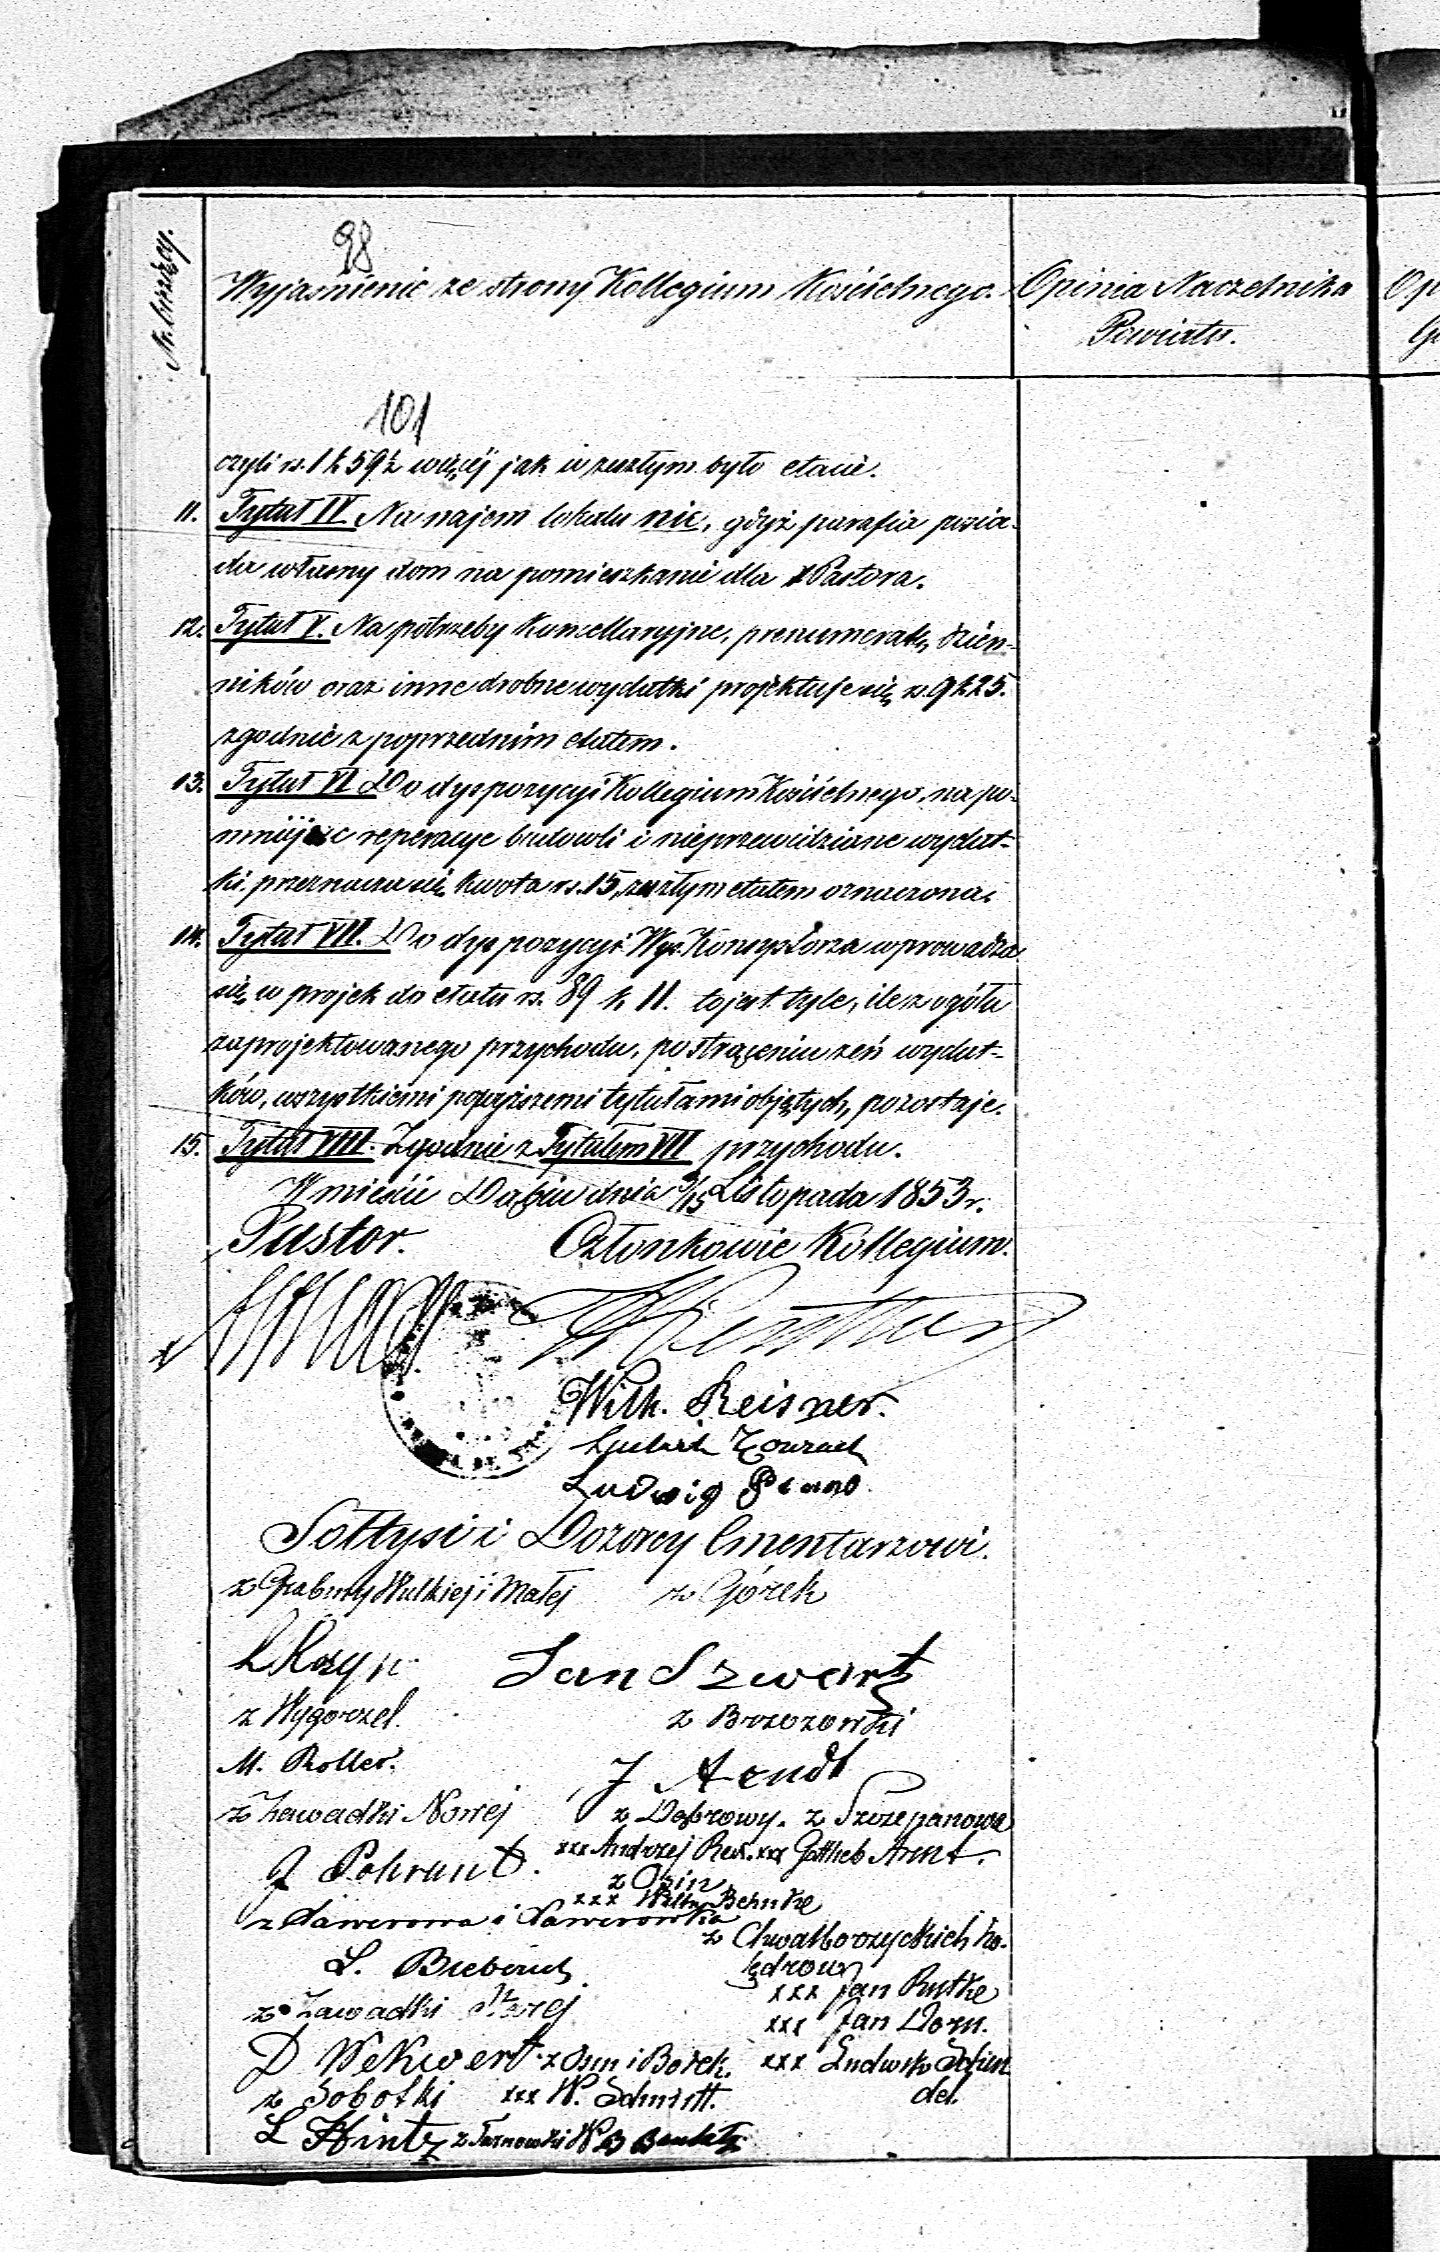 98
Nr. bieżący.
Wyjaśnienie ze strony Kollegium Kościelnego.
Opinia Naczelnika
Powiatu.
101
czyli rs. 1 k 59½ więcéj jak w zeszłym było etacie.
11. Tytuł IV. Na najem lokalu nic, gdyż parafia posia-
da własny dom na pomieszkanie dla Pastora.
12. Tytuł V. Na potrzeby Kancellaryjne, prenumeratę dzien-
ników oraz inne drobne wydatki projektuje się rs. 9 k 25.
zgodnie z poprzednim etatem.
13. Tytuł VI. Do dyspozycyi Kollegium Kościelnego, na po-
mniejsze reperacye budowli i nieprzewidziane wydat-
ki przeznacza się kwota rs. 15, zeszłym etatem oznaczona.
14. Tytuł VII. Do dyspozycyi Wys. Konsystorza wprowadza
się w projek do etatu rs. 89 k 11. to jest tyle, ile z ogółu
zaprojektowanego przychodu, po strąceniu zeń wydat-
ków, wszystkiemi powyższemi tytułami objętych, pozostaje.
15. Tytuł VIII. Zgodnie z Tytułem VII przychodu.
W mieście Dąbiu dnia 3/15 Listopada 1853 r.
Pastor. Członkowie Kollegium.
Wilh. Reisner.
Ludwig
Sołtysi i Dozorcy Cmentarzowi.
z Grabiny Wielkiej i Małej z Górek
Jan Szwartz
z Wygorzel. z Brzozowki
M. Roller. J Arndt
z Zawadki Nowej z Dąbrowy. z Szczepanowa
J Pohrunt. xxx Andrzej xxx Gottlieb Arnt.
xxx Behnke
z Ławerowa i
z Chwalborzyckich ho-
lędrow
L. xxx Jan Rutke
z Zawadki Starej xxx Jan Dorn.
D Wekwert z Osin i Borek. xxx Ludwik Schin
del.
z Sobotki xxx W. Schmitt.
L Hintz z Tarnowki